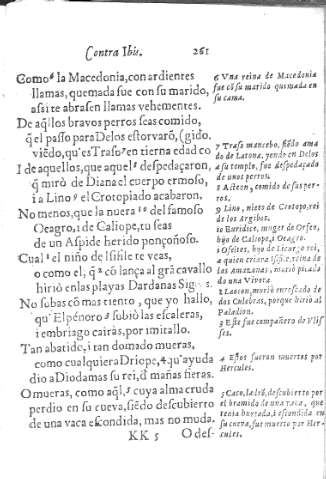 Contra Ibis. 261
Como⁶ la Macedonia, con ardientes
llamas, quemada fue con su marido,
assi te abrasen llamas vehementes.
De aq̃llos bravos perros seas comido,
q̃ el passo para Delos estorvarõ, (gido.
viẽdo, qu'es Traso⁷ en tierna edad co
I de aquellos, que aquel⁸ despedaçaron,
q̃ mirò de Diana el cuerpo ermoso,
i a Lino⁹ el Crotopiado acabaron.
No menos, que la nuera¹⁰ del famoso
Oeagro, i de Caliope, tu seas
de un Aspide herido ponçoñoso.
Cual¹ el niño de Isifile te veas,
o como el, q̃² cõ lança al grã cavallo
hiriò en las playas Dardanas
No subas cõ mas tiento, que yo hallo,
qu'Elpénoro³ subiò las escaleras,
i embriago cairàs, por imitallo.
Tan abatido, i tan domado mueras,
como cualquiera Driope,⁴ qu'ayuda
dio a Diodamas su rei, d' mañas fieras.
O mueras, como aq̃l,⁵ cuya alma cruda
perdio en su cueva, siẽdo descubierto
de una vaca escondida, mas no muda.
KK 5 O des-
6 Una reina de Macedonia
fue cõ su marido quemada en
su cama.
7 Traso mancebo, siẽdo ama
do de Latona, yendo en Delos
a su templo, fue despedaçado
de unos perros.
8 Acteon, comido de sus per-
ros.
9 Lino, nieto de Crotopo, rei
de los Argibos.
10 Euridice, muger de Orfeo,
hijo de Caliope, i Oeagro.
1 Ofeltes, hijo de Licurgo rei,
a quien criava Isifile, reina de
las Amazonas, muriò picado
de una Vivora
2 Laocon, muriò enroscado de
dos Culebras, porque hiriò al
Paladion.
3 Este fue compañero de Ulis-
ses.
4 Estos fueron muertos por
Hercules.
5 Caco, ladrõ, descubierto por
el bramido de una vaca, que
tenia hurtada, i escondida en
su cueva, fue muerto por Her-
cules.